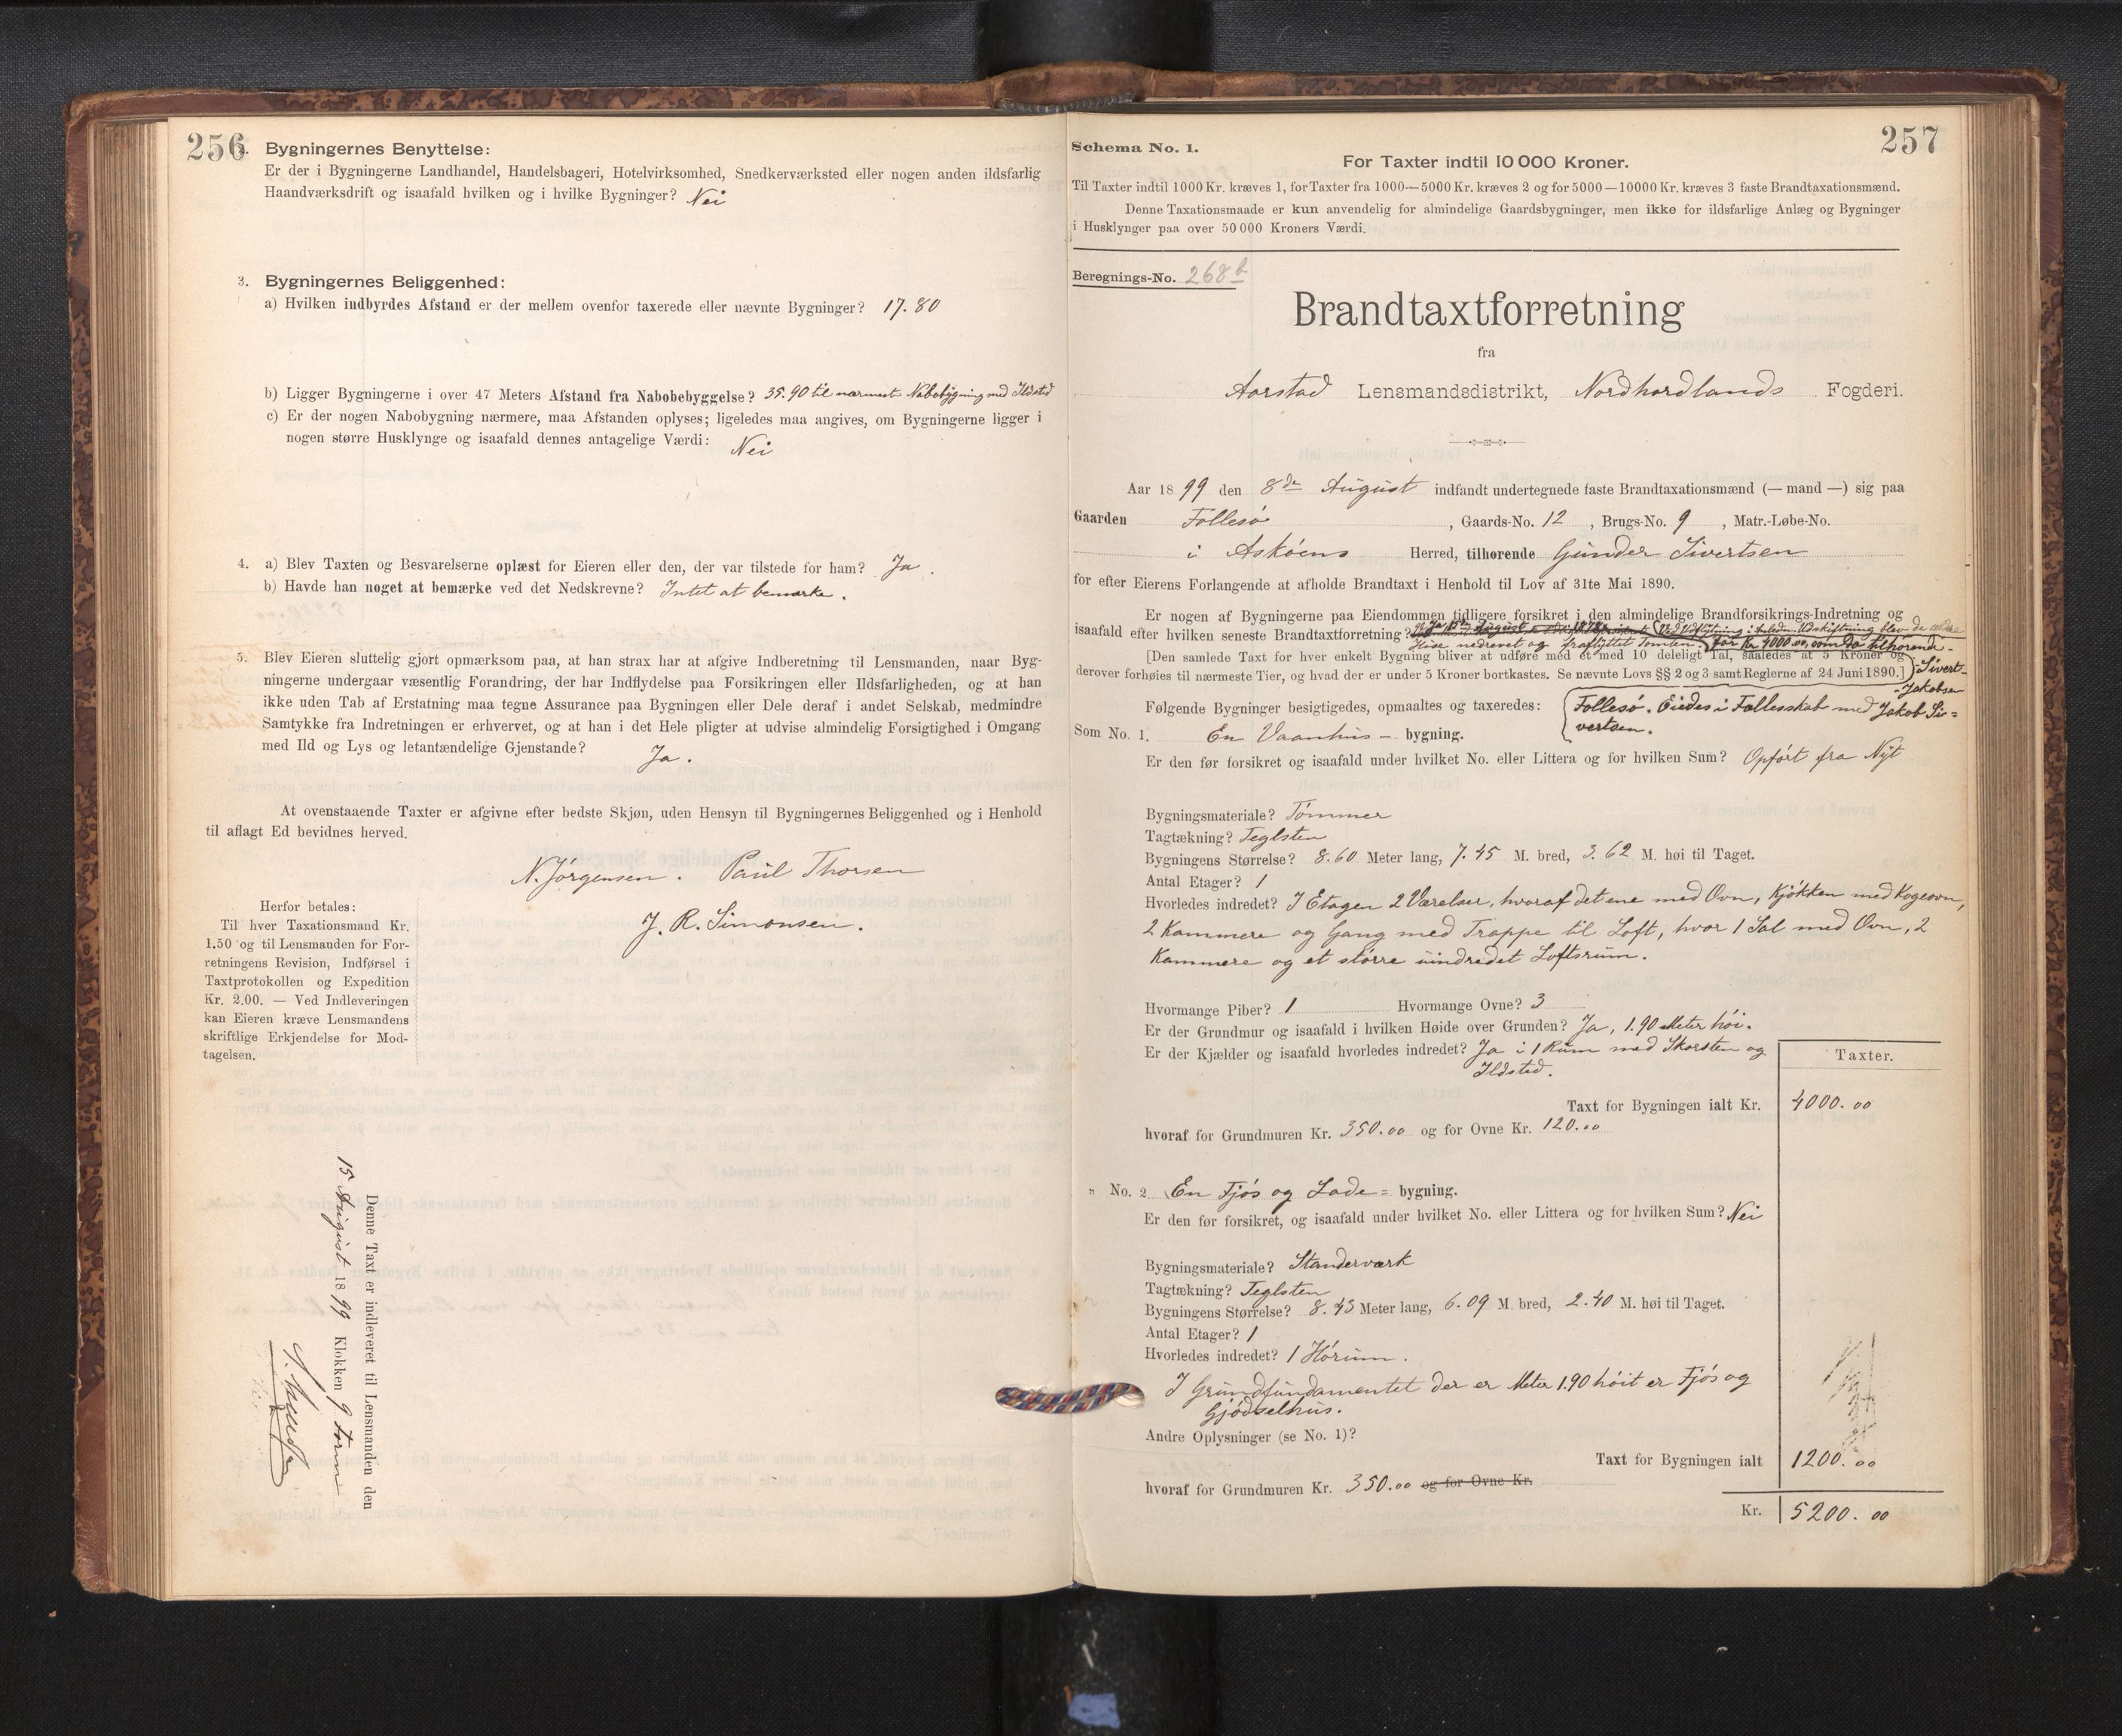 256
2. Bygningernes Benyttelse:
Er der i Bygningerne Landhandel, Handelsbageri, Hotelvirksomhed, Snedkerværksted eller nogen anden ildsfarlig
Haandværksdrift og isaafald hvilken og i hvilke Bygninger? Nei
3. Bygningernes Beliggenhed:
a) Hvilken indbyrdes Afstand er der mellem ovenfor taxerede eller nævnte Bygninger? 17.80
b) Ligger Bygningerne i over 47 Meters Afstand fra Nabobebyggelse? 35.90 til nærmest Nabobygning med Ildsted
c) Er der nogen Nabobygning nærmere, maa Afstanden oplyses; ligeledes maa angives, om Bygningerne ligger i
nogen større Husklynge og isaafald dennes antagelige Værdi: Nei
4. a) Blev Taxten og Besvarelserne oplæst for Eieren eller den, der var tilstede for ham? Ja.
b) Havde han noget at bemærke ved det Nedskrevne? Intet at bemærke.
5. Blev Eieren sluttelig gjort opmærksom paa, at han strax har at afgive Indberetning til Lensmanden, naar Byg-
ningerne undergaar væsentlig Forandring, der har Indflydelse paa Forsikringen eller Ildsfarligheden, og at han
ikke uden Tab af Erstatning maa tegne Assurance paa Bygningen eller Dele deraf i andet Selskab, medmindre
Samtykke fra Indretningen er erhvervet, og at han i det Hele pligter at udvise almindelig Forsigtighed i Omgang
med Ild og Lys og letantændelige Gjenstande? Ja.
At ovenstaaende Taxter er afgivne efter bedste Skjøn, uden Hensyn til Bygningernes Beliggenhed og i Henhold
til aflagt Ed bevidnes herved.
N. Jørgensen. Paul Thorsen
J. R. Simonsen.
Herfor betales:
Til hver Taxationsmand Kr.
1.50 og til Lensmanden for For-
retningens Revision, Indførsel i
Taxtprotokollen og Expedition
Kr. 2.00. — Ved Indleveringen
kan Eieren kræve Lensmandens
skriftlige Erkjendelse for Mod-
tagelsen.
Denne Taxt er indleveret til Lensmanden den
15 August 1899 Klokken 9 Form
257
Schema No. 1.
For Taxter indtil 10 000 Kroner.
Til Taxter indtil 1000 Kr. kræves 1, for Taxter fra 1000—5000 Kr. kræves 2 og for 5000—10000 Kr. kræves 3 faste Brandtaxationsmænd.
Denne Taxationsmaade er kun anvendelig for almindelige Gaardsbygninger, men ikke for ildsfarlige Anlæg og Bygninger
i Husklynger paa over 50 000 Kroners Værdi.
Beregnings-No. 268 b
Brandtaxtforretning
fra
Aarstad Lensmandsdistrikt, Nordhordlands Fogderi.
Aar 1899 den 8de August indfandt undertegnede faste Brandtaxationsmænd (— mand —) sig paa
Gaarden Follesø, Gaards-No. 12, Brugs-No. 9, Matr.-Løbe-No.
i Askøens Herred, tilhørende Gunder Sivertsen
for efter Eierens Forlangende at afholde Brandtaxt i Henhold til Lov af 31te Mai 1890.
Er nogen af Bygningerne paa Eiendommen tidligere forsikret i den almindelige Brandforsikrings-Indretning og
isaafald efter hvilken seneste Brandtaxtforretning? Ved Udflytning i Anledn. Udskiftning blev de ældre
Huse nedrevet og fraflyttet Tomten. for Kr 4000.00, som da tilhørende
[Den samlede Taxt for hver enkelt Bygning bliver at udføre med et med 10 deleligt Tal, saaledes at 5 Kroner og
derover forhøies til nærmeste Tier, og hvad der er under 5 Kroner bortkastes. Se nævnte Lovs §§ 2 og 3 samt Reglerne af 24 Juni 1890.] Sivert
Jakobsen
Følgende Bygninger besigtigedes, opmaaltes og taxeredes: Follesø. Eiedes i Fællesskab med Jakob Si-
vertsen.
Som No. 1. En Vaanhus- bygning.
Er den før forsikret og isaafald under hvilket No. eller Littera og for hvilken Sum? Opført fra Nyt
Bygningsmateriale? Tømmer
Tagtækning? Teglsten
Bygningens Størrelse? 8.60 Meter lang, 7.45 M. bred, 3.62 M. høi til Taget.
Antal Etager? 1
Hvorledes indredet? I Etagen 2 Værelser, hvoraf det ene med Ovn, Kjøkken med Kogeovn,
2 Kammere og Gang med Trappe til Loft, hvor 1 Sal med Ovn, 2
Kammere og et større uindredet Loftsrum.
Hvormange Piber? 1 Hvormange Ovne? 3
Er der Grundmur og isaafald i hvilken Høide over Grunden? Ja, 1.90 Meter høi.
Er der Kjælder og isaafald hvorledes indredet? Ja i 1 Rum med Skorsten og
Ildsted.
Taxter.
Taxt for Bygningen ialt Kr. 4000.00
hvoraf for Grundmuren Kr. 350.00 og for Ovne Kr. 120.00
" No. 2 En Fjøs og Lade- bygning.
Er den før forsikret, og isaafald under hvilket No. eller Littera og for hvilken Sum? Nei
Bygningsmateriale? Standerværk
Tagtækning? Teglsten
Bygningens Størrelse? 8.43 Meter lang, 6.09 M. bred, 2.40 M. høi til Taget.
Antal Etager? 1
Hvorledes indredet? 1 Hørum.
I Grundfundamentet der er Meter 1.90 høit er Fjøs og
Gjødselhus.
Andre Oplysninger (se No. 1)?
Taxt for Bygningen ialt 1200.00
hvoraf for Grundmuren Kr. 350.00 og for Ovne Kr.
Kr. 5200.00